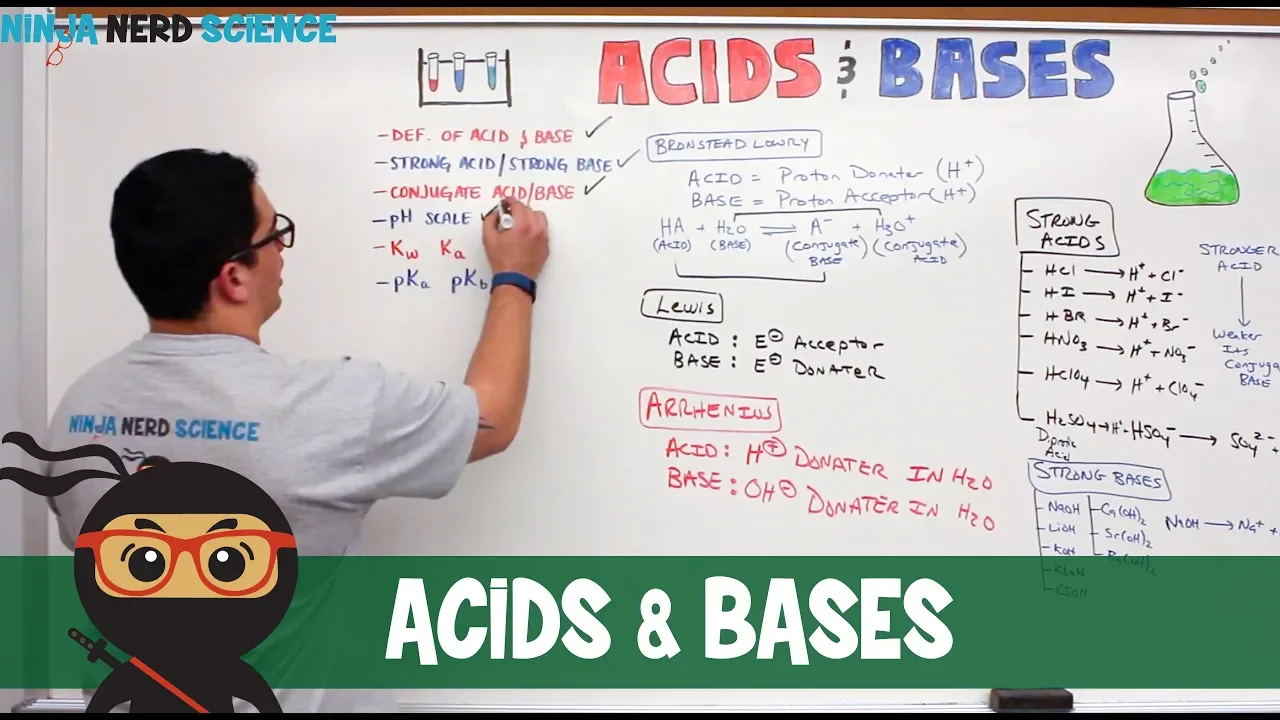 NiNJA NERD SCIENCE
ACIDS & BASES
- DEF. OF ACID & BASE ✓
- STRONG ACID/STRONG BASE ✓
- CONJUGATE ACID/BASE ✓
- pH SCALE ✓
- Kw Ka
- pKa pKb
BRONSTEAD LOWRY
ACID = Proton Donater (H⁺)
BASE = Proton Acceptor (H⁺)
HA + H₂O ⇌ A⁻ + H₃O⁺
(ACID) (BASE) (Conjugate BASE) (Conjugate ACID)
LEWIS
ACID : E⊖ ACCEPTOR
BASE : E⊖ DONATER
ARRHENIUS
ACID : H⊕ DONATER IN H₂O
BASE : OH⊖ DONATER IN H₂O
STRONG
ACIDS
HCl → H⁺ + Cl⁻
HI → H⁺ + I⁻
HBR → H⁺ + Br⁻
HNO₃ → H⁺ + NO₃⁻
HClO₄ → H⁺ + ClO₄⁻
H₂SO₄ → H⁺ HSO₄⁻ → SO₄²⁻ +
Diprotic
Acid
STRONGER
ACID
Weaker
Its
Conjuga
BASE
STRONG BASES
NaOH
LiOH
KOH
RbOH
CSOH
Ca(OH)₂
Sr(OH)₂
Ba(OH)₂
NaOH → Na⁺ +
NINJA NERD SCIENCE
ACiDS & BASES